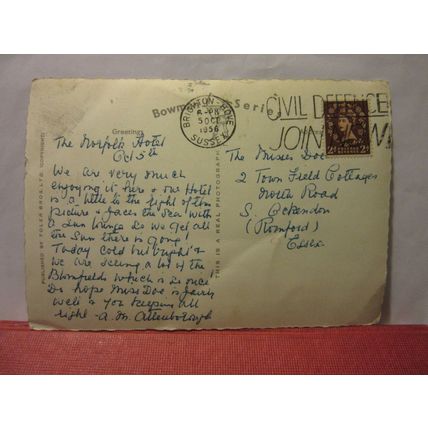 Bowm Series
Greetings
BRIGHTON · HOVE
6-PM
5 OC
1956
SUSSEX
CIVIL DEFENCE
JOIN NOW
2D
PUBLISHED BY
THIS IS A REAL PHOTOGRAPH
The Norfolk Hotel
Oct 5th
We are very much
enjoying it here & our Hotel
is a little to the right of this
picture & faces the sea with
a Sun lounge so we get all
the Sun there is going!
Today cold but bright &
we are seeing a lot of the
Blomfields which is nice
Do hope Miss Doe is fairly
well & you keeping all
right - A. M. Attenborough
The Misses Doe
2 Town Field Cottages
North Road
S. Ockendon
(Romford)
Essex